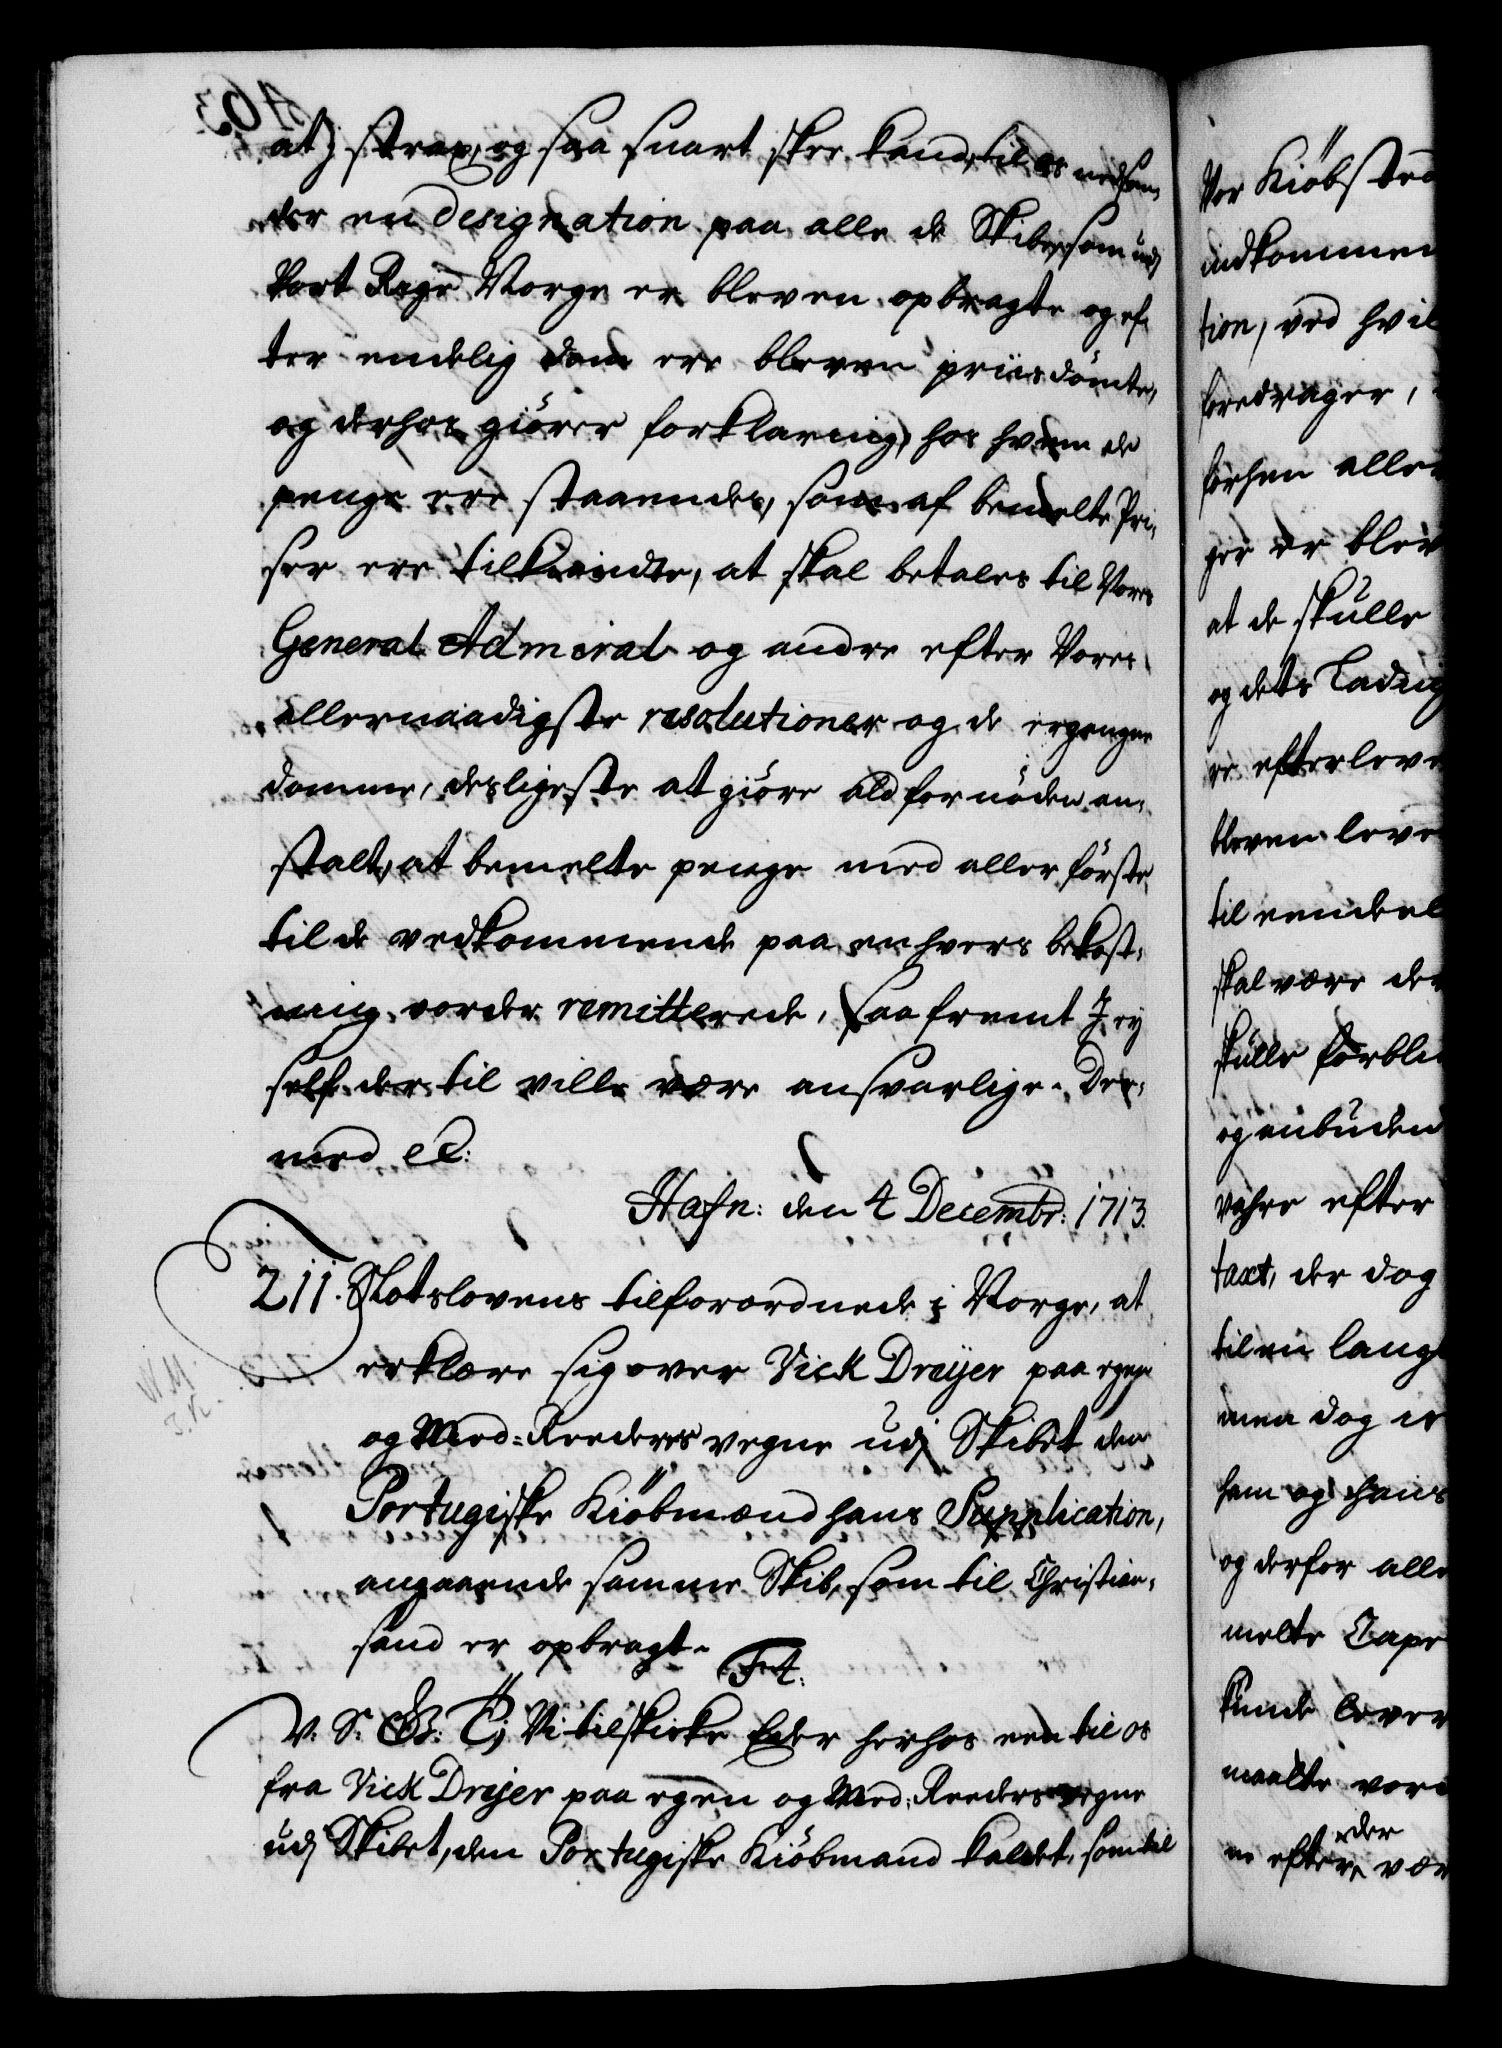 at J strax, og saa snart skee kand, til os nedsen,
der en Designation paa alle de Skiber, som udj
Vort Rige Norge er bleven opbragte og ef,
ter endelig Dom ere bleven priisdømte,
og derhos giører forklaring, hos hvem de
penge ere staaendes, som af bemelte Pri,
ser ere tilkiendte, at skal betales til Vores
General Admiral og andre efter Vores
allernaadigste resolutioner og de ergangne
Domme, desligeste at giøre ald fornøden an,
stalt, at bemelte penge med aller første
til de vedkommende paa enhvers bekost,
ning vorder remitterede, saa fremt J ey
self der til ville være ansvarlige. Der,
med etc:
Hafn: den 4 Decembr: 1713.
211. Slotslovens tilforordnede i Norge, at
erklære sig over Vick Dreyer paa egne
og Med-Reederes vegne udj Skibet den
Portugiske Kiöbmand hans Supplication,
angaaende samme Skib, som til Christian,
sand er opbragt.
F4.
V. S. G. T; Vi tilskicke Eder herhos een til os
fra Vick Dreyer paa egen og Med-Reederes vegne
udj Skibet, den Portugiske Kiöbmand kaldet, som til
Vor Kiöbsted
indkommen
tion, ved hvil
foredrager,
forhen aller
ger er blev
at de skulle
og dets Ladning
re efterleve
bleven leve
til eendeel
skal være der
skulle forbli
og anbuden
vahre efter
taxt, der dog
til en lang
men dog er
ham og hans
og derfor alle
melte Cape
kunde lever
maatte vor
der